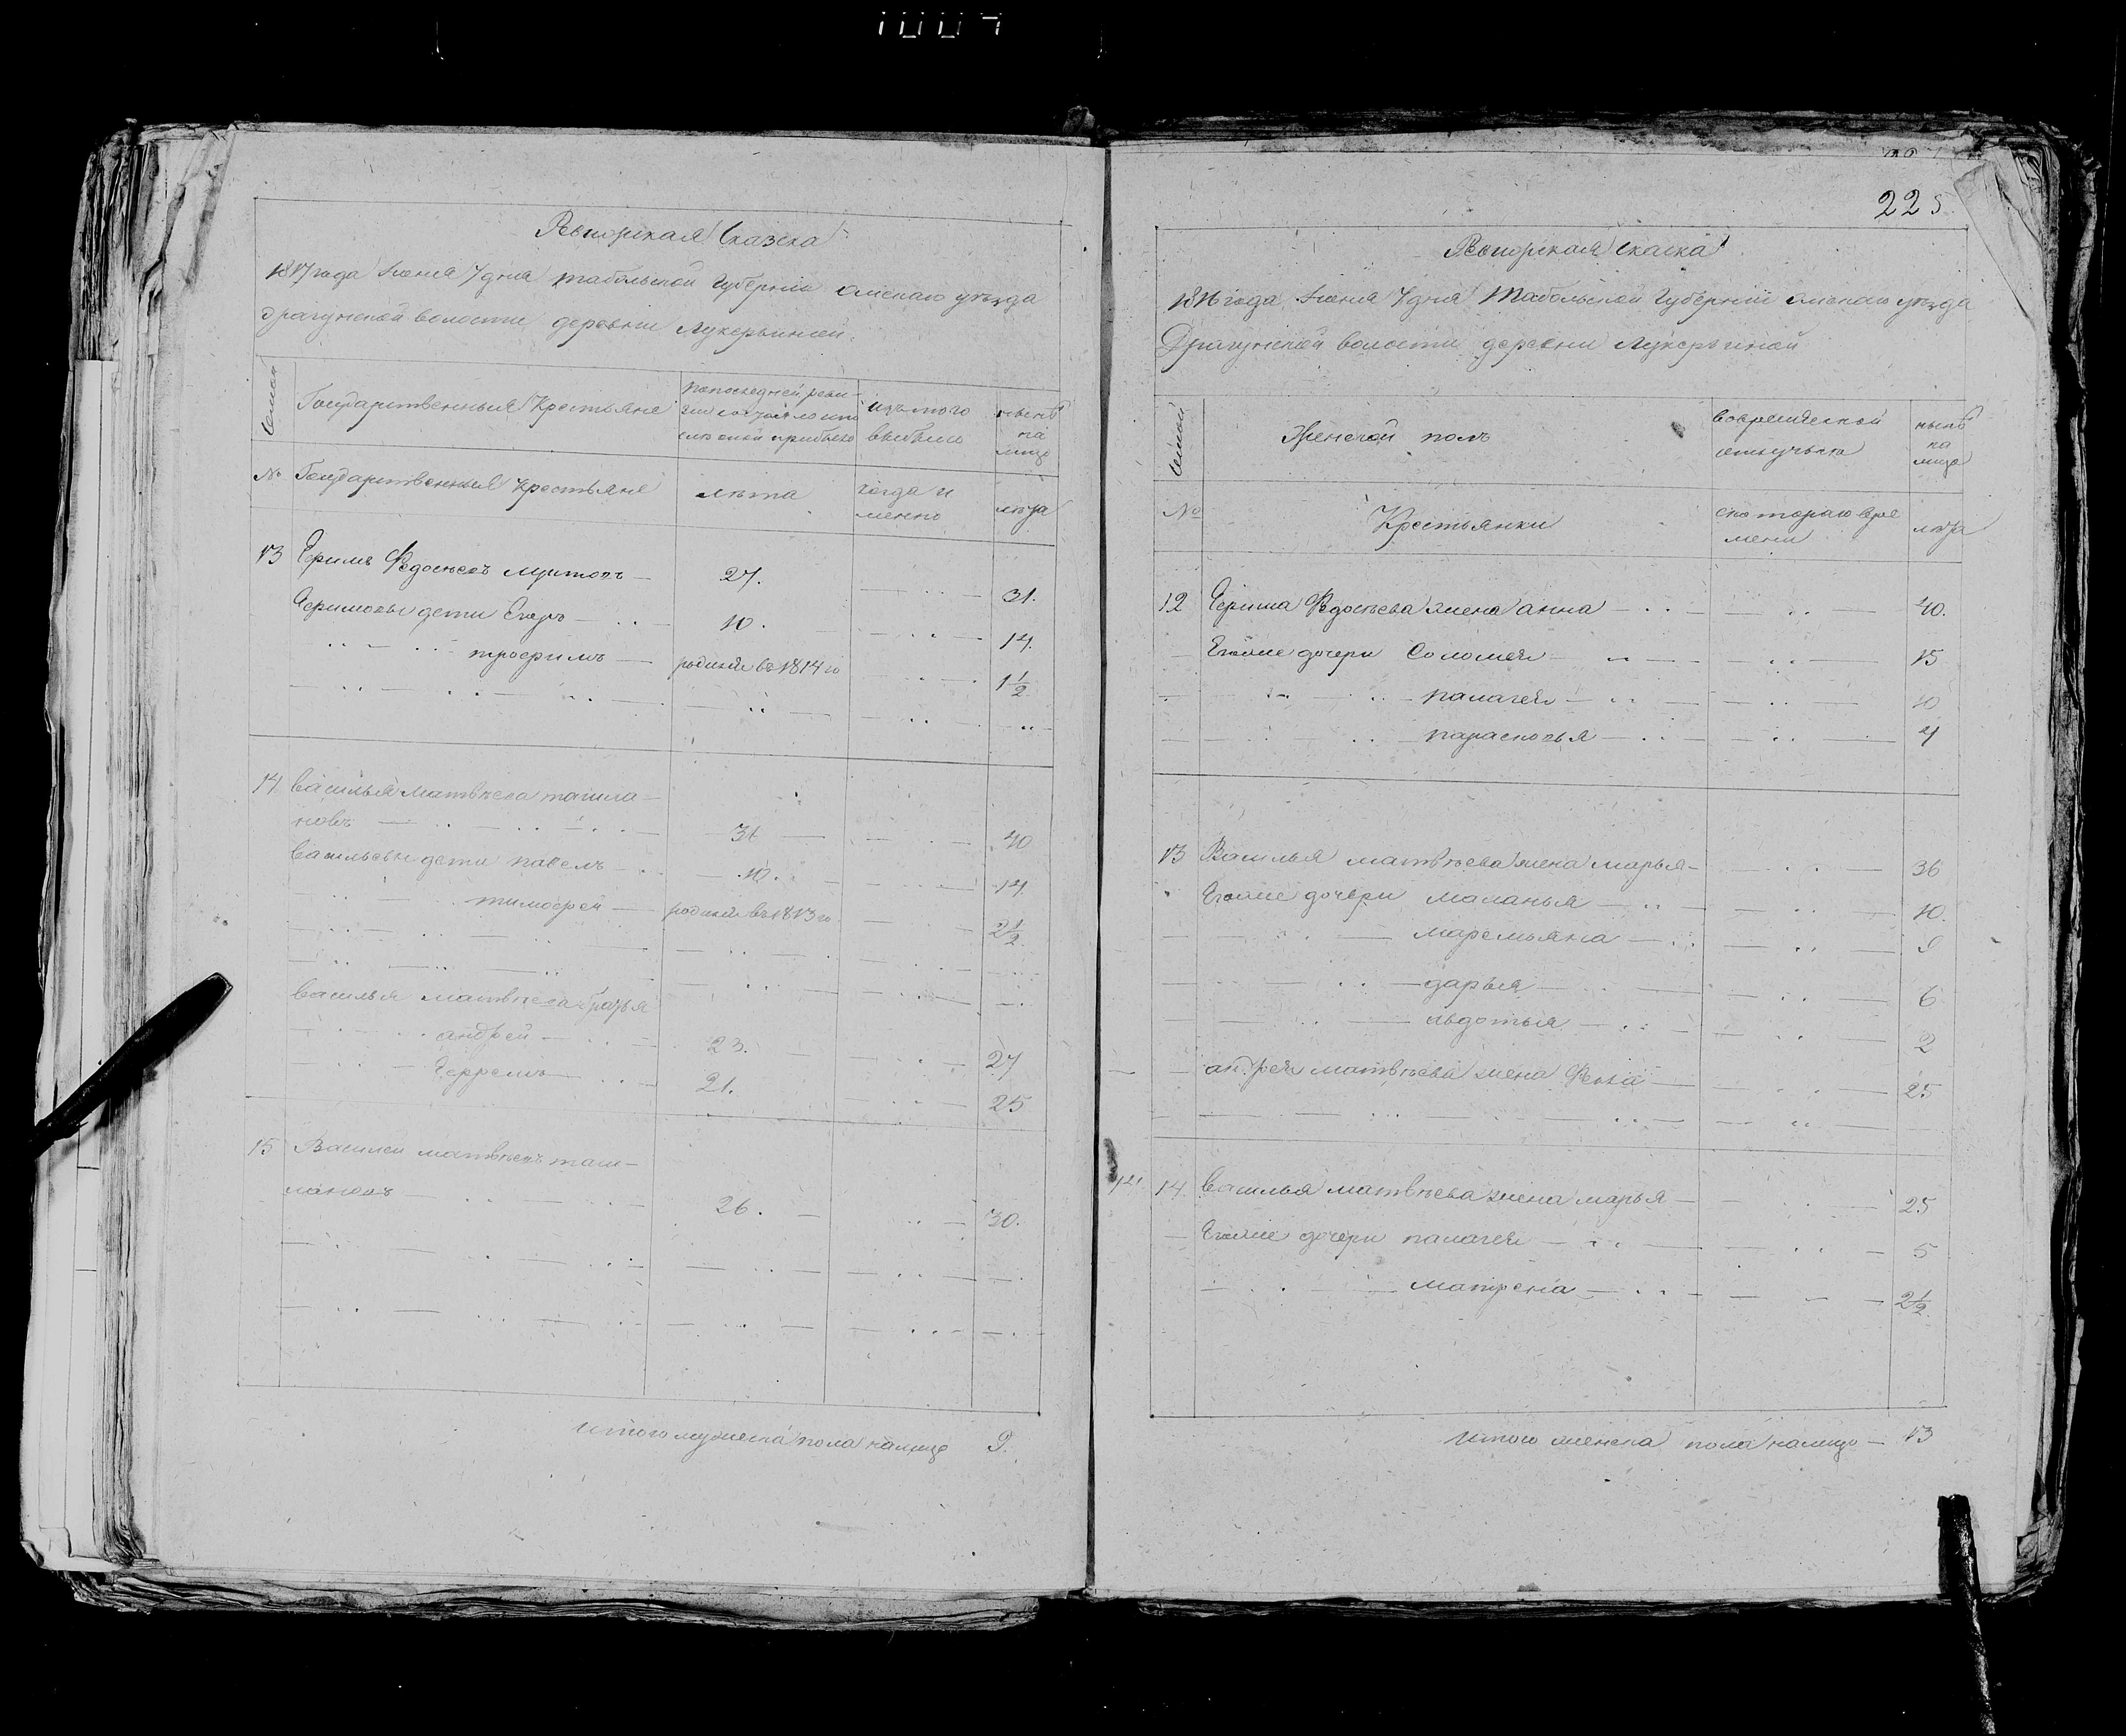 Ревизская Сказка
1817 года Июня 7 дня Табольской Губернии Омскаго уезда
Драгунской волости деревни Лукерьиной.
Семьи
Государственныя Крестьяне
Попоследней реви-
зии
прибыло
изъ того
выбыло
ныне
на
лицо
№
Государственныя Крестьяне
лета
когда и
менно
лета
13 Ефимъ Федосеевъ
27.
31.
Ефимовы дети Егоръ
10.
14.
трофимъ
родился въ 1814 го
1 1/2
14 Василья Матвеева ташла-
новъ
31
40
Васильевы дети павелъ
10.
14.
тимофей
родился въ 1813 го
2 1/2
Василья Матвеева братья
андрей
23.
27
Ефремъ
21.
25
15 Василеи матвеевъ таш-
лановъ
26.
30.
итого мужеска пола налице 9.
225
Ревизская скаска
1816 года Июня 7 дня Табольской Губернии Омскаго уезда
Драгунской волости деревни Лукерьиной
Семьи
Женской полъ
вовременной
отлучьке
ныне
на
лицо
№
Крестьянки
с котораго вре
мени
лета
12 Ефима Федосеева жена анна 40.
Егоже дочери Соломея 15
палагея 10
парасковья 4
13 Василья матвеева жена марья 36
Егоже дочери маланья 10.
маремьяна 9
дарья 6
авдотья 2
андрея матвеева жена Фекла 25
14 Василья матвеева жена марья 25
Егоже дочери палагея 5
Матрена 2 1/2
итого женска пола налицо 13